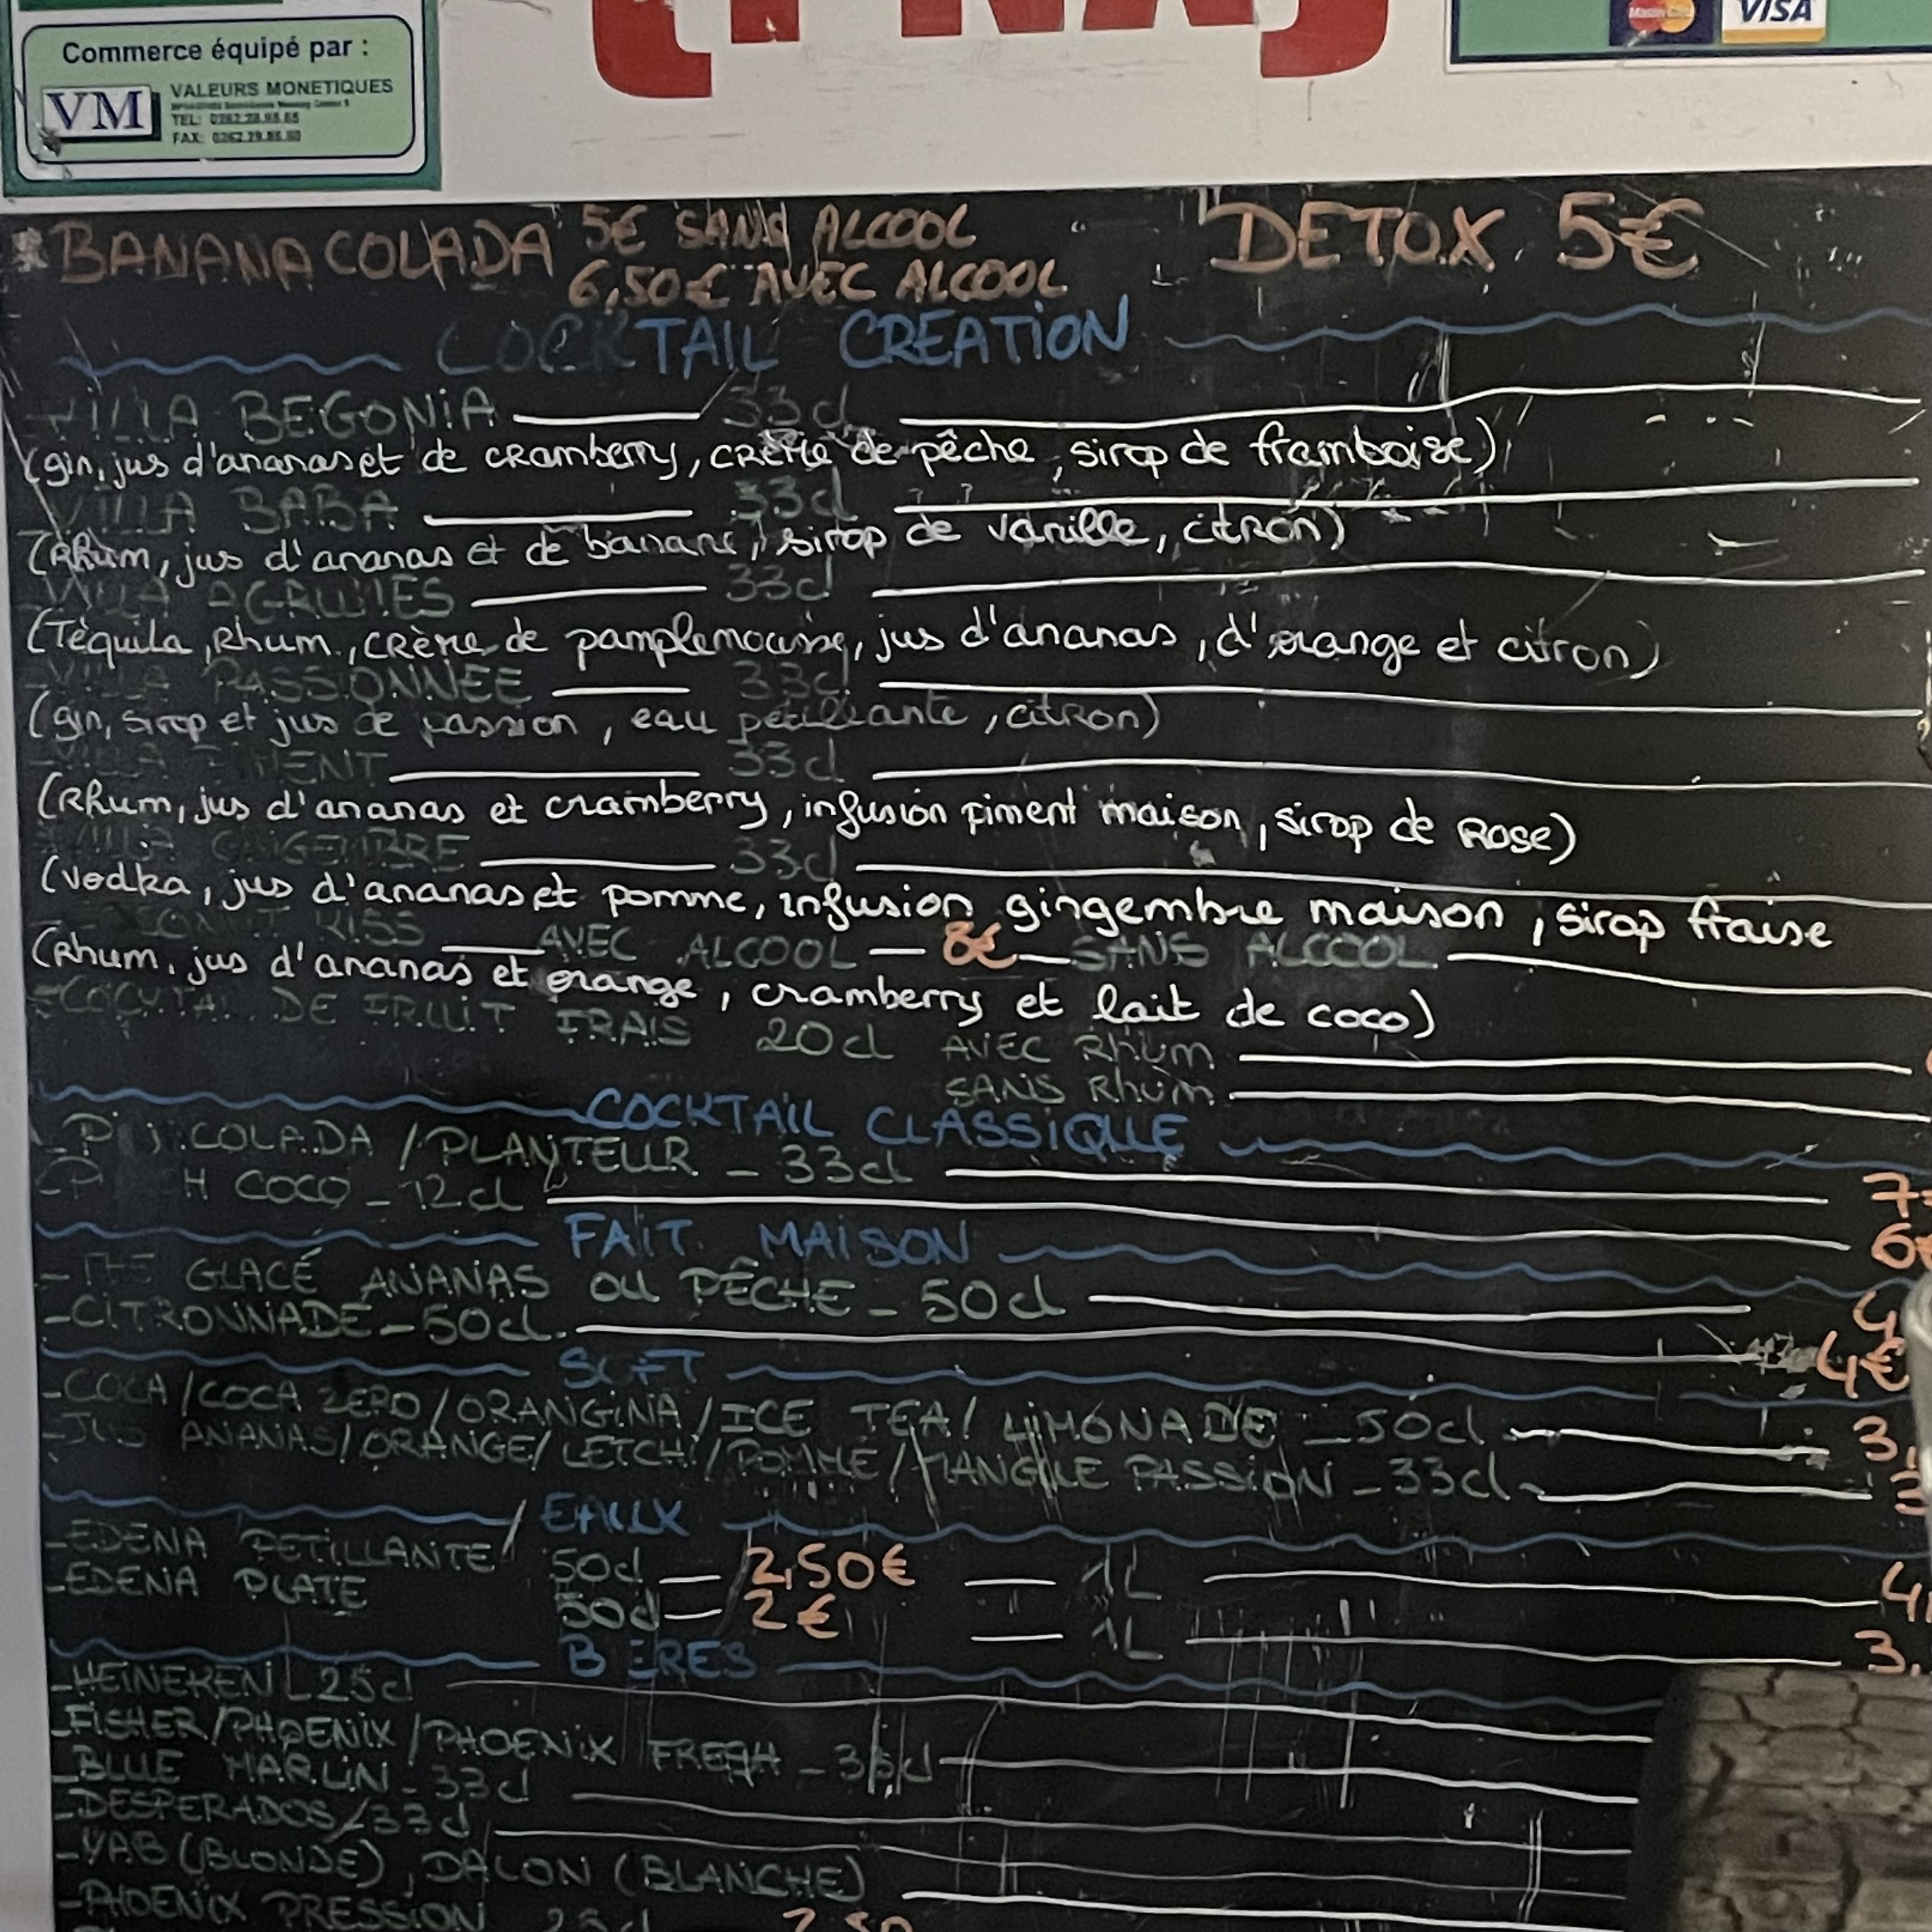 Commerce équipé par :
VM VALEURS MONETIQUES
TEL: 0262.29.95.65
FAX: 0262.29.86.50
MasterCard VISA
*BANANA COLADA 5€ SANS ALCOOL
6,50€ AVEC ALCOOL
DETOX 5€
COCKTAIL CREATION
-VILLA BEGONIA 33cl
(gin, jus d'ananas et de cramberry, crème de pêche, sirop de framboise)
-VILLA BABA 33cl
(Rhum, jus d'ananas et de banane, sirop de vanille, citron)
-VILLA AGRUMES 33cl
(Téquila, Rhum, crème de pamplemousse, jus d'ananas, d'orange et citron)
-VILLA PASSIONNEE 33cl
(gin, sirop et jus de passion, eau petillante, citron)
-VILLA PIMENT 33cl
(Rhum, jus d'ananas et cramberry, infusion piment maison, sirop de Rose)
-VILLA GINGEMBRE 33cl
(vodka, jus d'ananas et pomme, infusion gingembre maison, sirop fraise
KISS AVEC ALCOOL - 8€ - SANS ALCOOL
(Rhum, jus d'ananas et orange, cramberry et lait de coco)
-COCKTAIL DE FRUIT FRAIS 20cl AVEC Rhum
SANS Rhum
COCKTAIL CLASSIQUE
COLADA / PLANTEUR - 33cl 7
H COCO - 12cl 6€
FAIT MAISON
-THE GLACÉ ANANAS OU PÊCHE - 50cl 4
-CITRONNADE - 50cl 4€
SOFT
-COCA/COCA ZERO/ORANGINA/ICE TEA/LIMONADE - 50cl 3,
-JUS ANANAS/ORANGE/LETCHI/POMME/MANGUE PASSION - 33cl 3
EAUX
-EDENA PETILLANTE 50cl = 2,50€ = 1L 4,
-EDENA PLATE 50cl = 2€ = 1L 3,
BIERES
-HEINEKEN 25cl
-FISHER/PHOENIX/PHOENIX FRESH - 33cl
-BLUE MARLIN - 33cl
-DESPERADOS/33cl
-YAB (BLONDE), DALON (BLANCHE)
-PHOENIX PRESSION 25cl 2,50